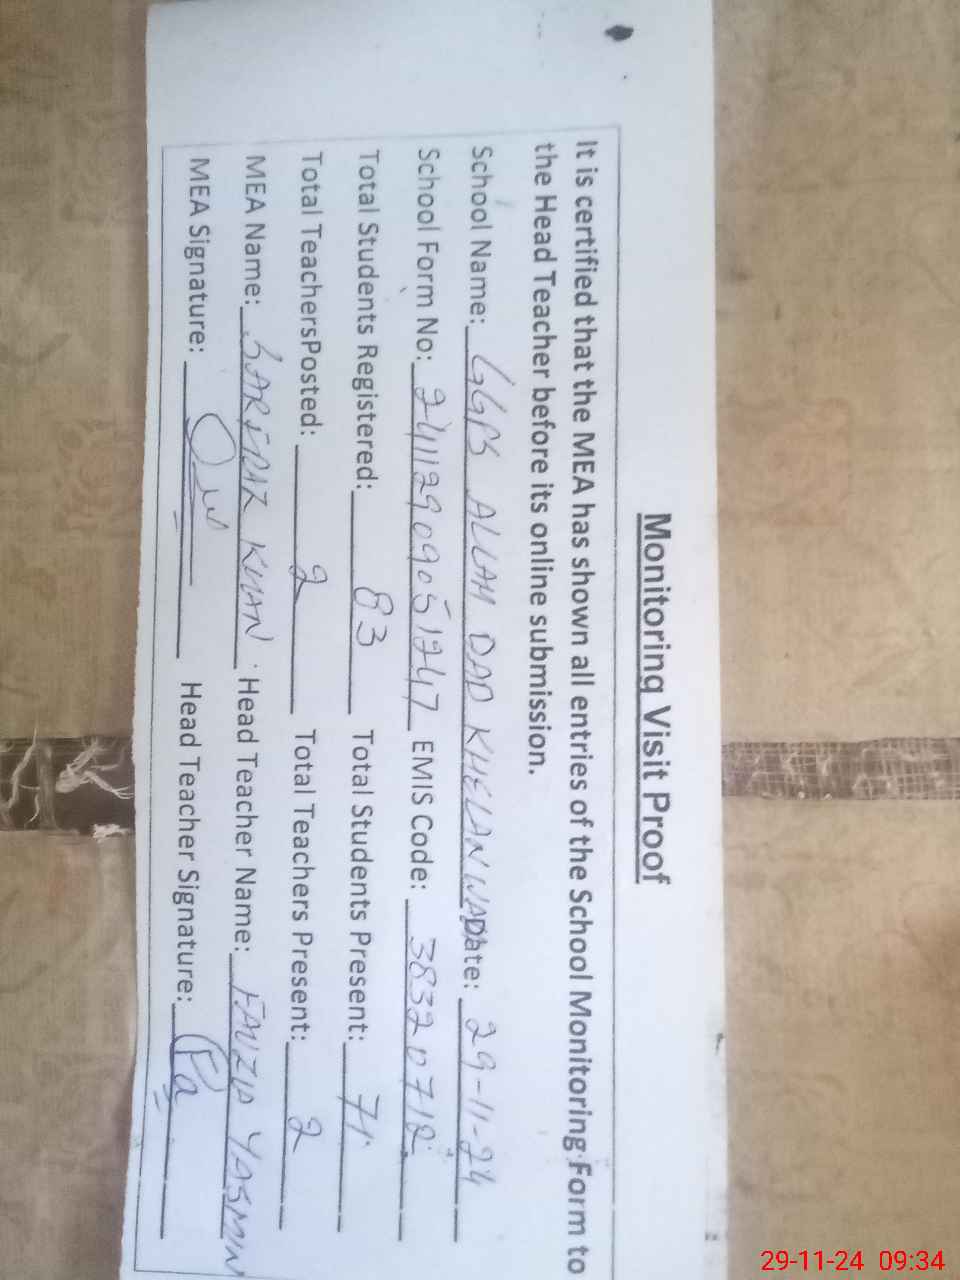 Monitoring Visit Proof
It is certified that the MEA has shown all entries of the School Monitoring Form to
the Head Teacher before its online submission.
School Name: GGPS ALLAH DAD KHELANWA Date: 29-11-24
School Form No: 24112909051247 EMIS Code: 38320712
Total Students Registered: 83 Total Students Present: 71
Total TeachersPosted: 2 Total Teachers Present: 2
MEA Name: SARFRAZ KHAN Head Teacher Name: FAUZIA YASMIN
MEA Signature: Head Teacher Signature:
29-11-24 09:34